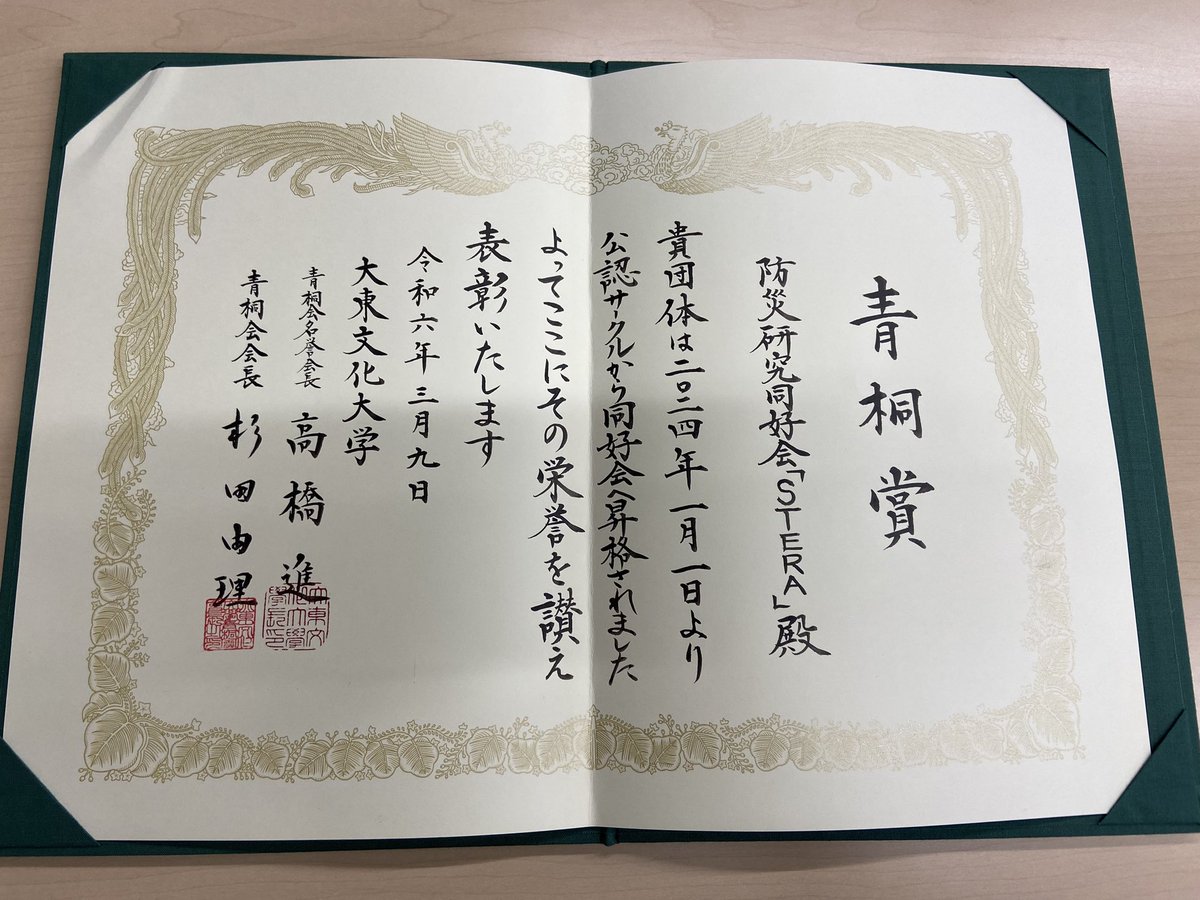 青桐賞
防災研究同好会「STERA」殿
貴団体は二〇二四年一月一日より
公認サークルから同好会へ昇格されました
よってここにその栄誉を讃え
表彰いたします
令和六年三月九日
大東文化大学
青桐会名誉会長 高橋進
青桐会会長 杉田由理